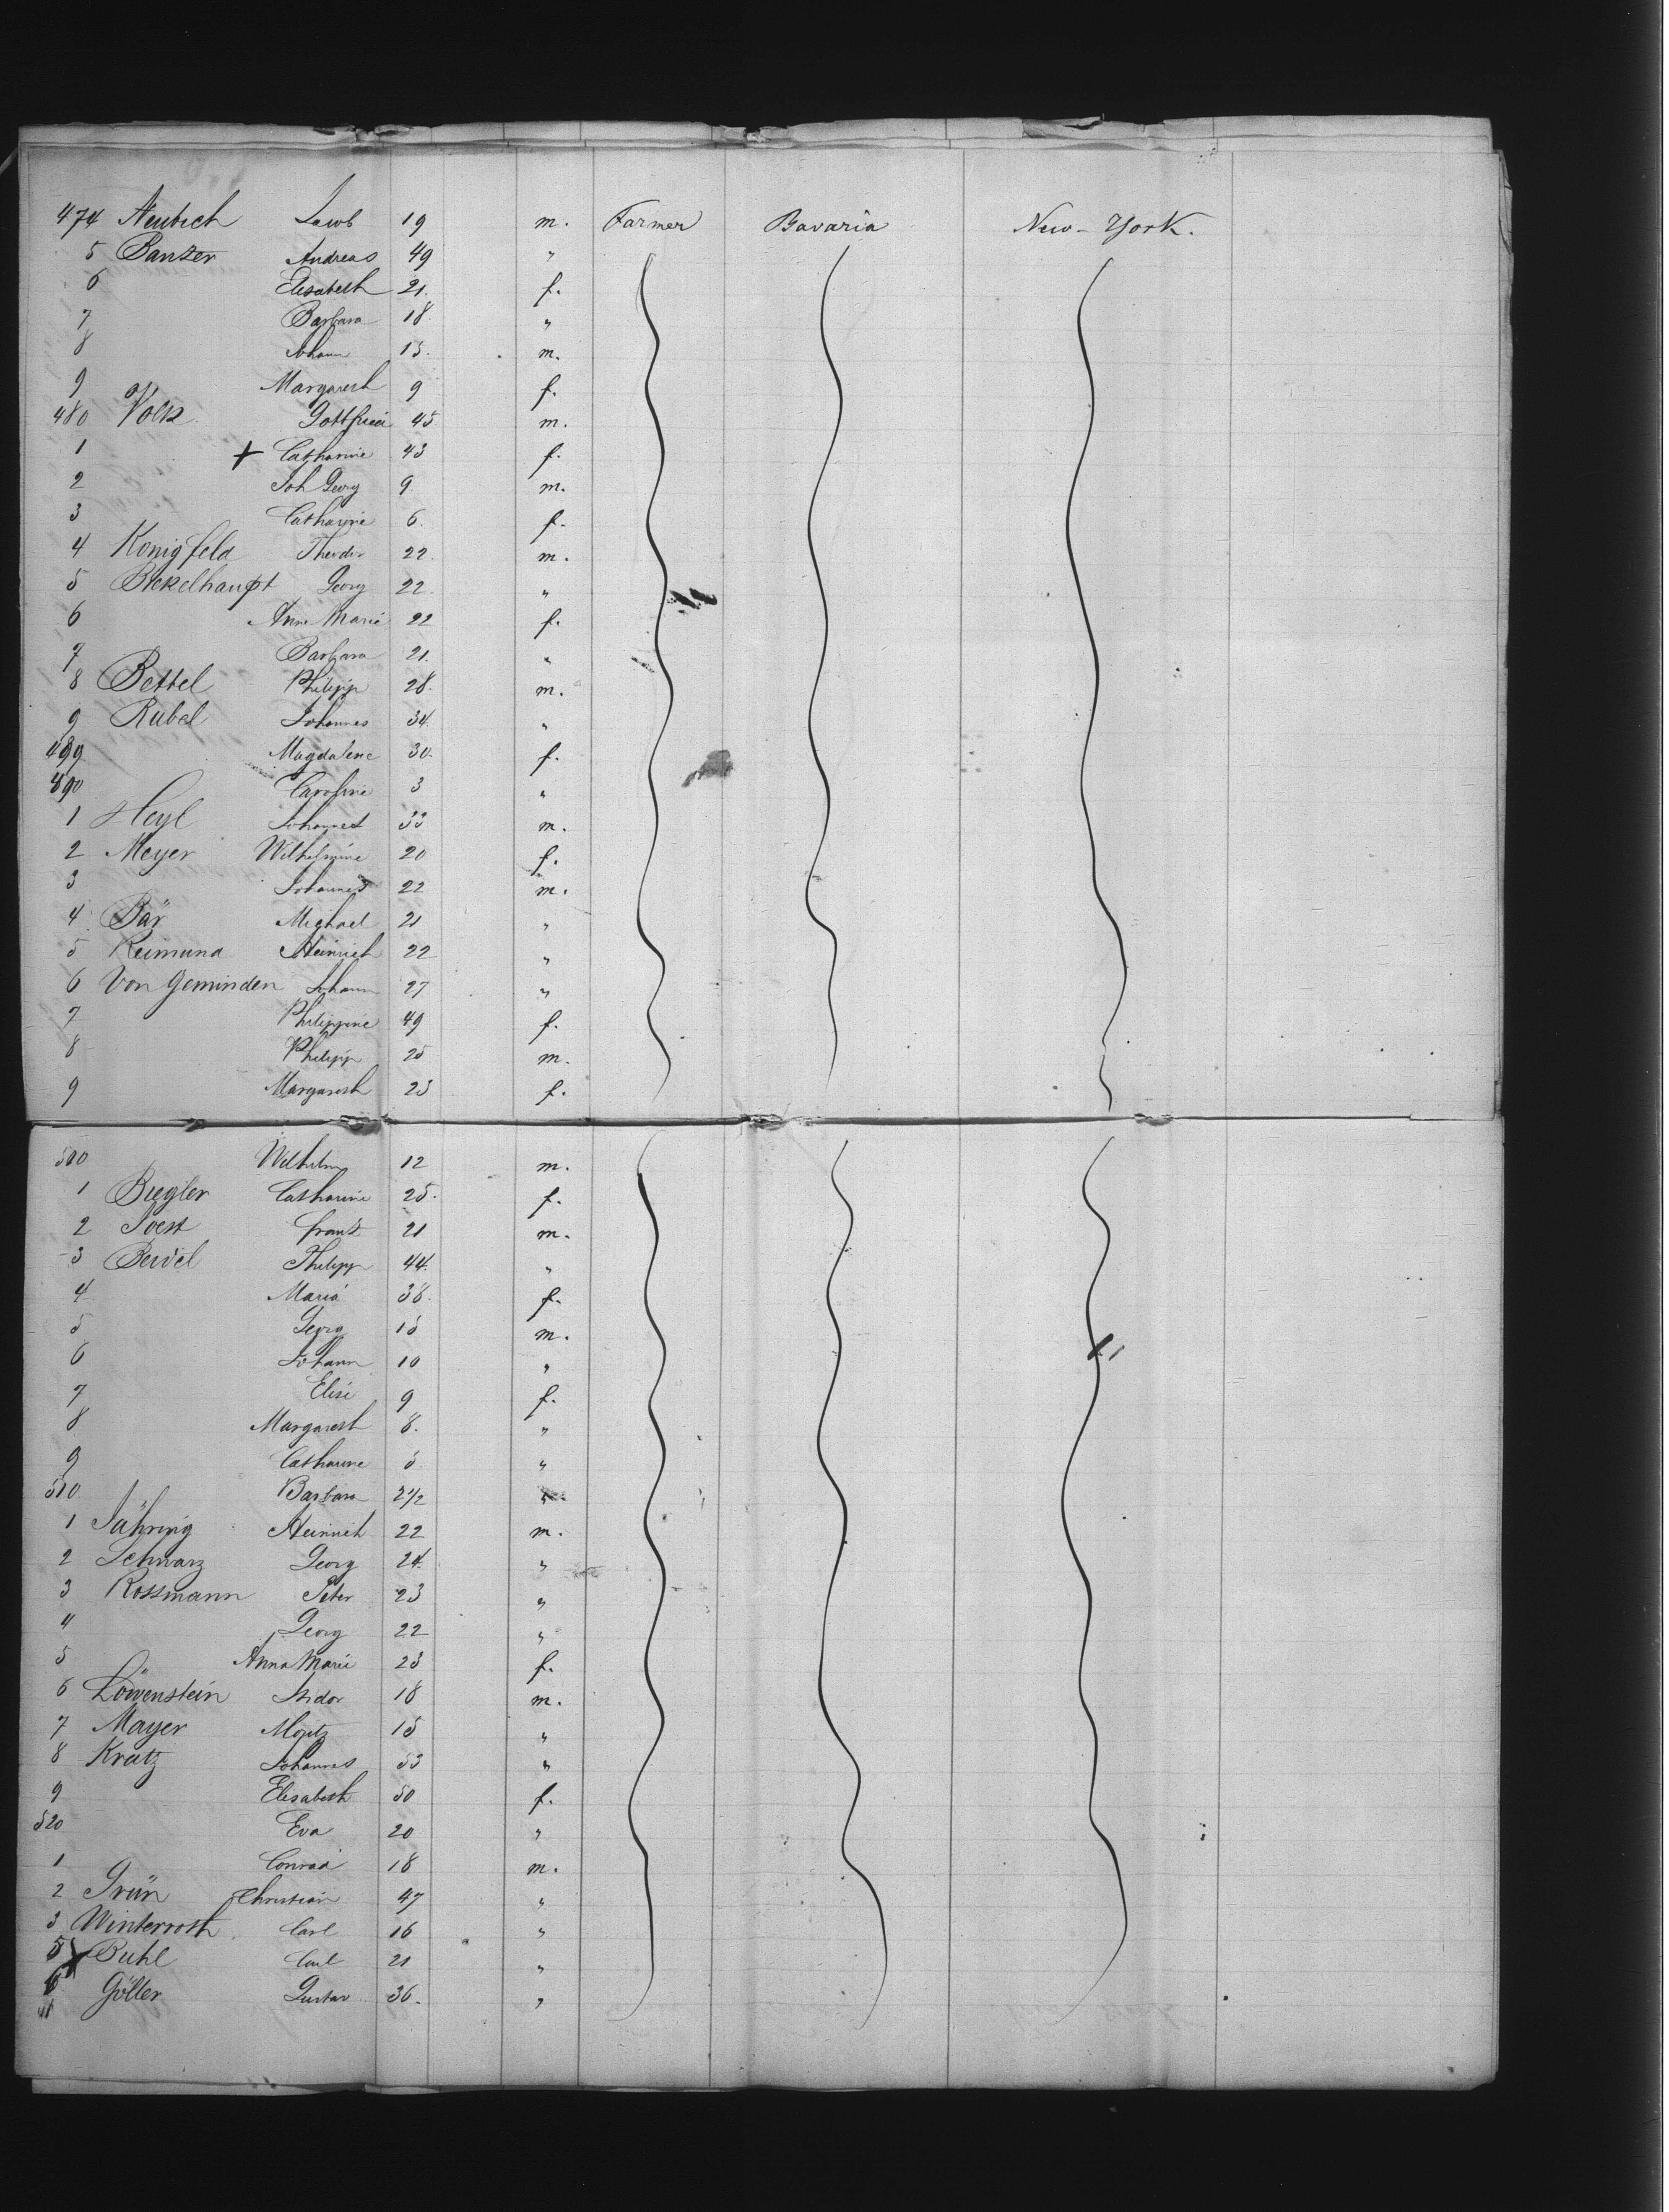 474 Neubech Jacob 19 m. Farmer Bavaria New-York.
5 Panzer Andreas 49 "
6 Elisabeth 21. f.
7 Barbara 18 "
8 Johann 13. m.
9 Margareth 9 f.
480 Volk Gottfried 45 m.
1 + Catharine 43 f.
2 Joh Georg 9. m.
3 Catharine 6. f.
4 Königfeld Theodor 22. m.
5 Bickelhaupt Georg 22. "
6 Anna Marie 22 f.
7 Barbara 21. "
8 Bettel Philipp 28. m.
9 Rubel Johannes 34. "
489 Magdalene 30. f.
490 Caroline 3 "
1 Heyl Johannes 33 m.
2 Meyer Wilhelmine 20 f.
3 Johannes 22 m.
4 Bär Michael 21 "
5 Reimund Heinrich 22 "
6 Von Geminden Johann 27 "
7 Philippine 49 f.
8 Philipp 25 m.
9 Margareth 23 f.
500 Wilhelm 12 m.
1 Biegler Catharine 25. f.
2 Joest Franz 21 m.
3 Beidel Philipp 44. "
4 Maria 38. f.
5 Georg 15 m.
6 Johann 10 "
7 Elise 9 f.
8 Margareth 8. "
9 Catharine 5 "
510 Barbara 2 1/2 "
1 Jähring Heinrich 22 m.
2 Schwarz Georg 24. "
3 Rossmann Peter 23 "
4 Georg 22 "
5 Anna Marie 23 f.
6 Löwenstein Isidor 18 m.
7 Mayer Moritz 15 "
8 Kratz Johannes 53 "
9 Elisabeth 50 f.
520 Eva 20 "
1 Conrad 18 m.
2 Grün Christian 47 "
3 Winterroth Carl 16 "
5 Buhl Carl 21 "
6 Göller Gustav 36. "